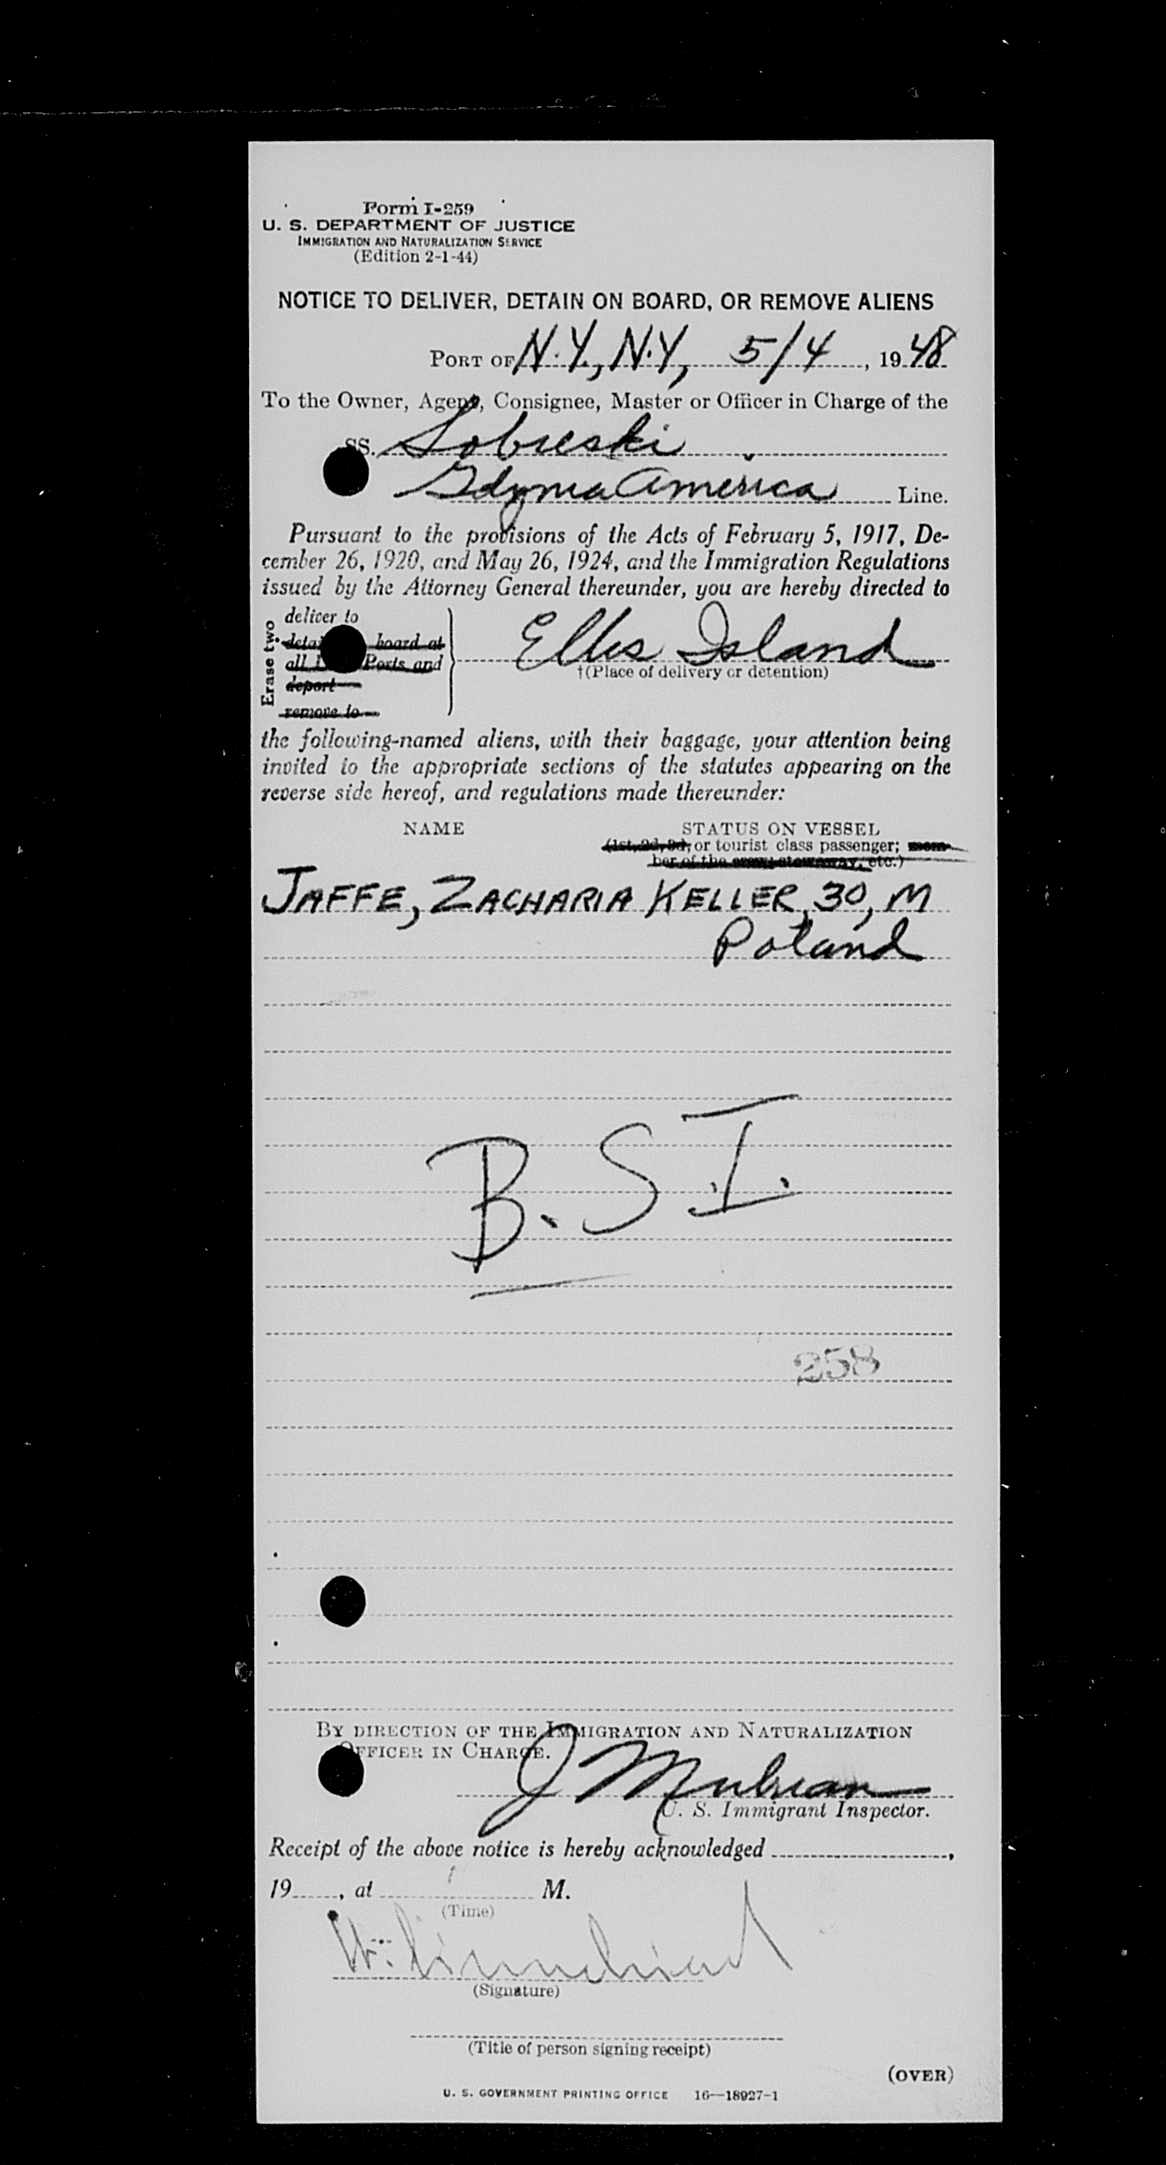 Form I-259
U. S. DEPARTMENT OF JUSTICE
IMMIGRATION AND NATURALIZATION SERVICE
(Edition 2-1-44)
NOTICE TO DELIVER, DETAIN ON BOARD, OR REMOVE ALIENS
PORT OF N.Y., N.Y, 5/4, 1948
To the Owner, Agent, Consignee, Master or Officer in Charge of the
SS. Sobieski
Gdynia America Line.
Pursuant to the provisions of the Acts of February 5, 1917, De-
cember 26, 1920, and May 26, 1924, and the Immigration Regulations
issued by the Attorney General thereunder, you are hereby directed to
Erase two
deliver to
board at
all Ports and
deport
remove to
Ellis Island
†(Place of delivery or detention)
the following-named aliens, with their baggage, your attention being
invited to the appropriate sections of the statutes appearing on the
reverse side hereof, and regulations made thereunder:
NAME STATUS ON VESSEL
(1st, 2d, 3d, or tourist class passenger; mem-
ber of the crew, stowaway, etc.)
JAFFE, ZACHARIA KELLER, 30, M
Poland
B.S.I.
258
BY DIRECTION OF THE IMMIGRATION AND NATURALIZATION
OFFICER IN CHARGE.
J
U. S. Immigrant Inspector.
Receipt of the above notice is hereby acknowledged ,
19 , at M.
(Time)
(Signature)
(Title of person signing receipt)
(OVER)
U. S. GOVERNMENT PRINTING OFFICE 16—18927-1